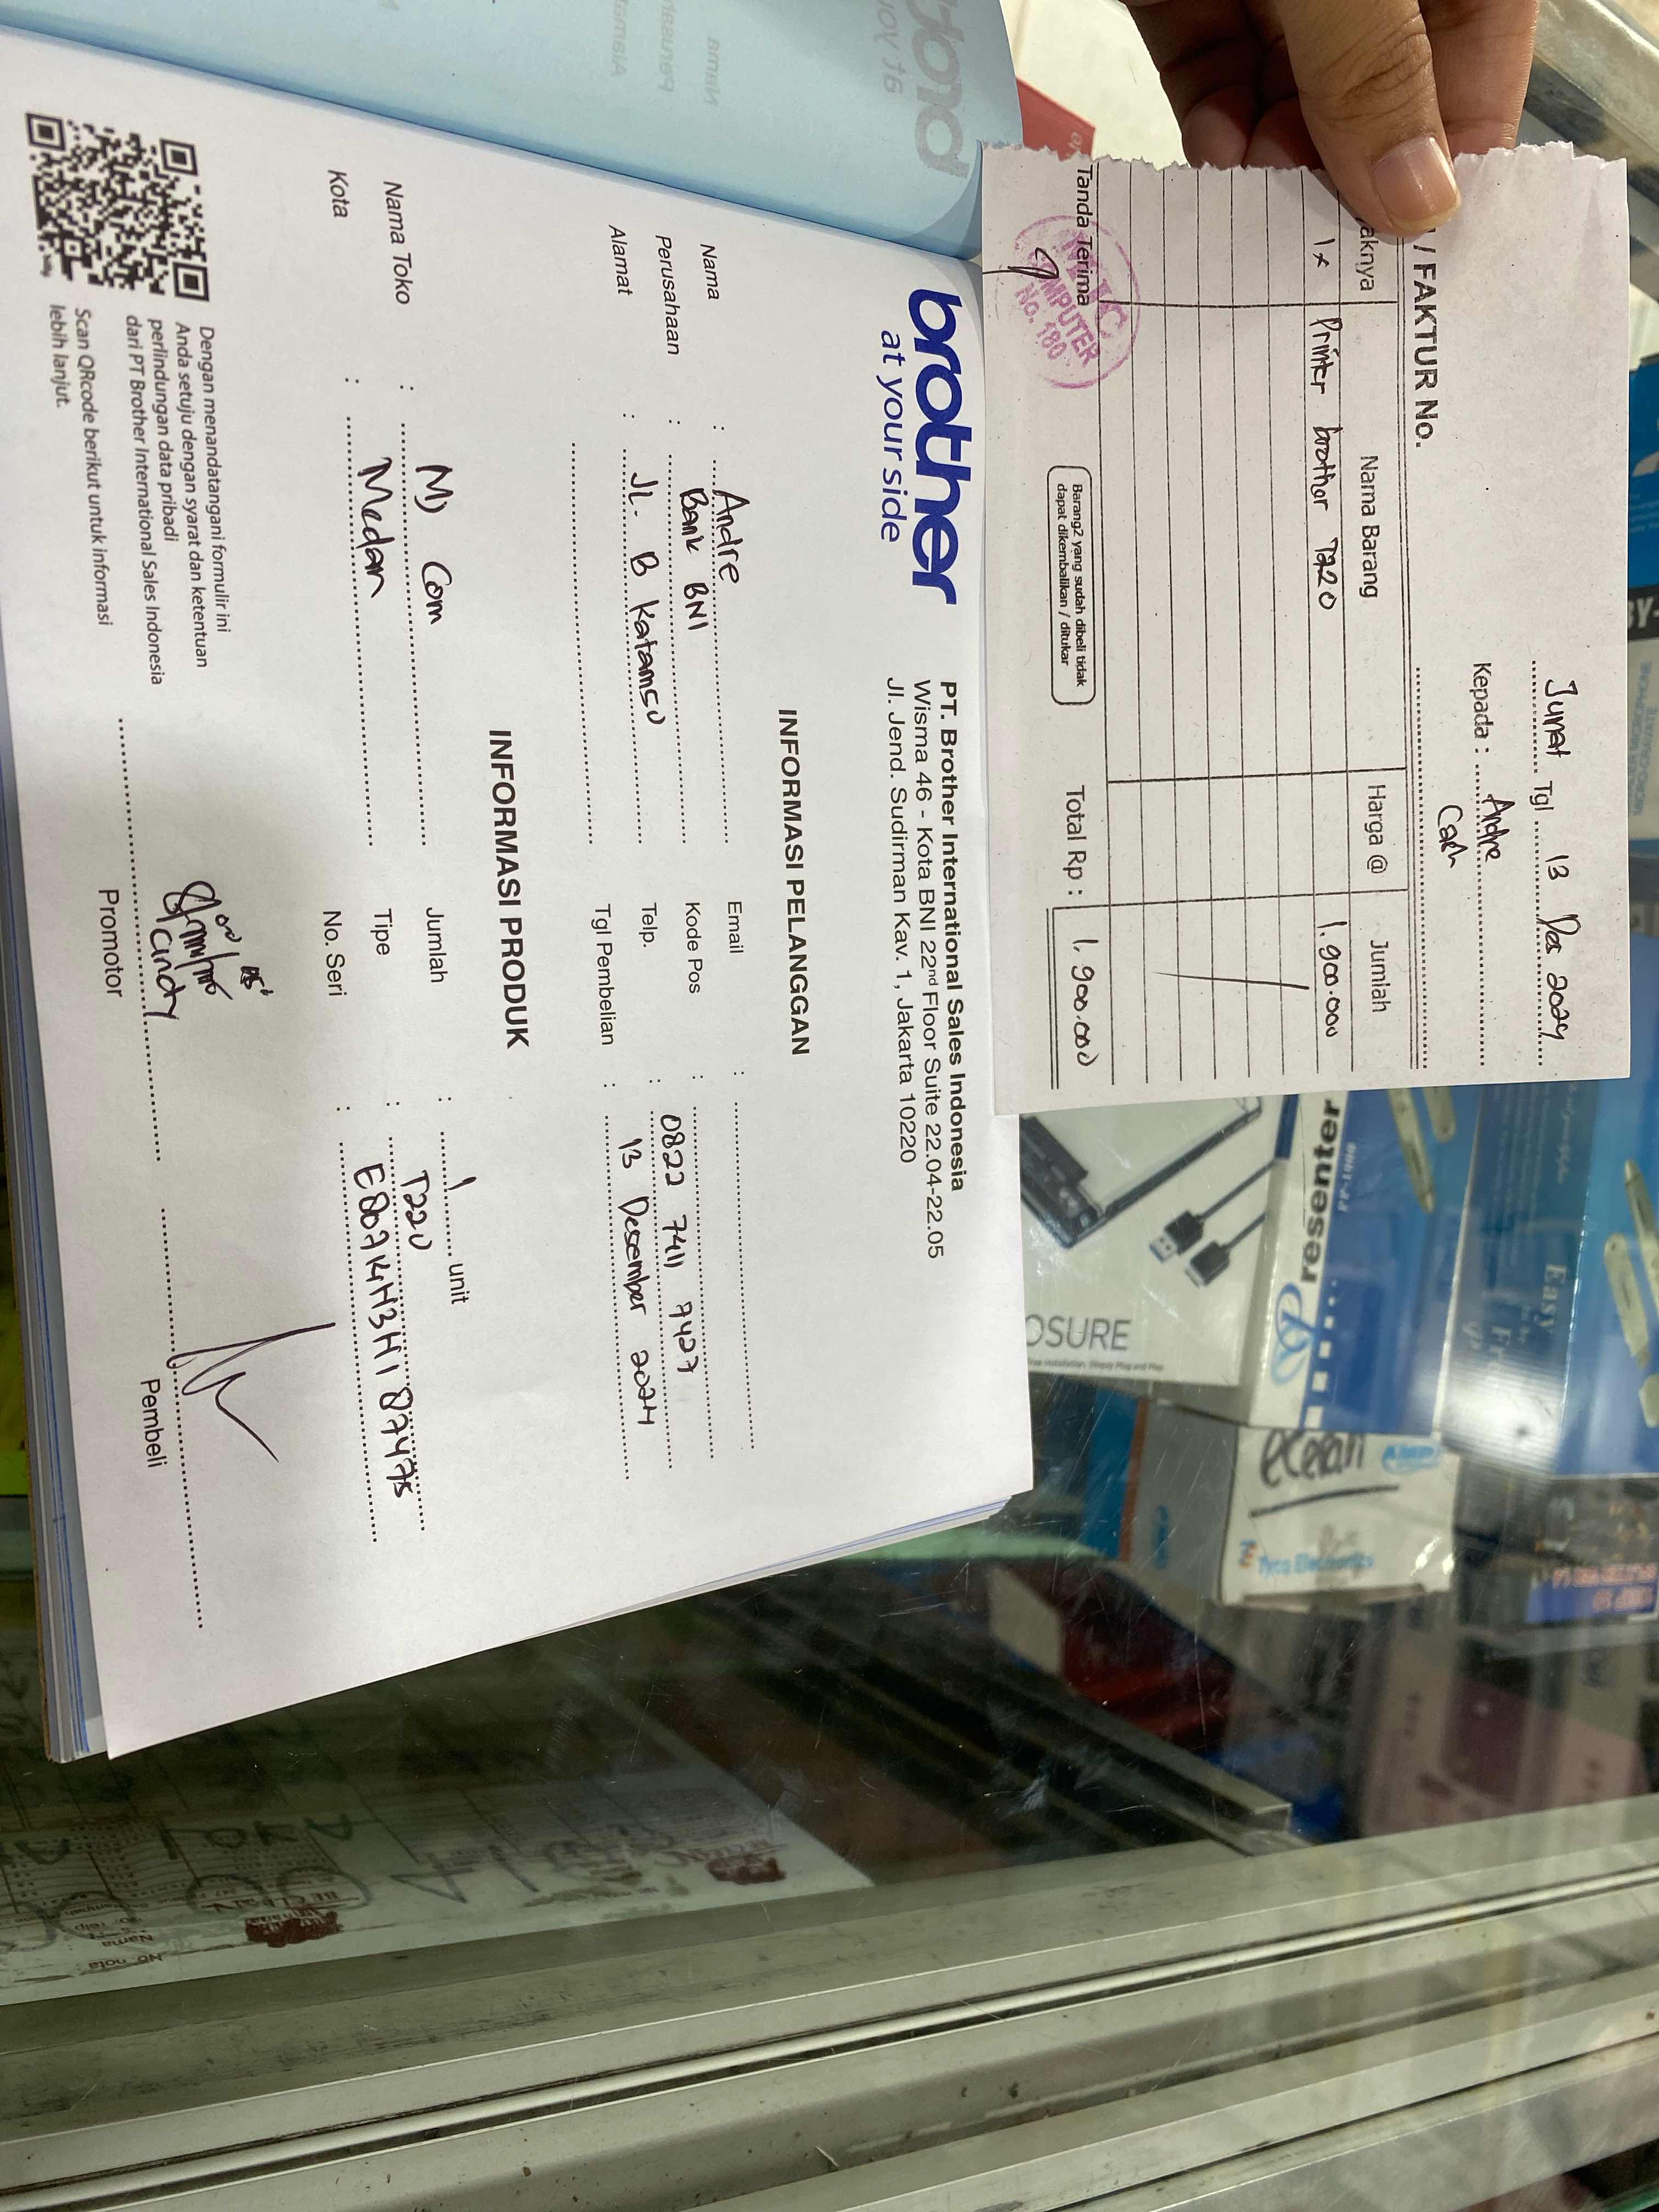 Jumat Tgl 13 Des 2024
Kepada : Andre
Cash
/ FAKTUR No.
aknya Nama Barang Harga @ Jumlah
1x Printer brother T220 1.900.000
Tanda Terima
COMPUTER
No. 180
Barang2 yang sudah dibeli tidak
dapat dikembalikan / ditukar
Total Rp : 1.900.000
brother
at your side
PT. Brother International Sales Indonesia
Wisma 46 - Kota BNI 22nd Floor Suite 22.04-22.05
Jl. Jend. Sudirman Kav. 1, Jakarta 10220
INFORMASI PELANGGAN
Nama : Andre
Perusahaan : Bank BNI
Alamat : JL. B Katamso
Email :
Kode Pos :
Telp. : 0822 7411 7427
Tgl Pembelian : 13 Desember 2024
INFORMASI PRODUK
Nama Toko : MJ Com
Kota : Medan
Jumlah : 1 unit
Tipe : T220
No. Seri : E80714H3H187475
Dengan menandatangani formulir ini
Anda setuju dengan syarat dan ketentuan
perlindungan data pribadi
dari PT Brother International Sales Indonesia
Scan QRcode berikut untuk informasi
lebih lanjut.
Cindy
Promotor
Pembeli
reseuter
OSURE
Easy
AMP
Tyco Electronics